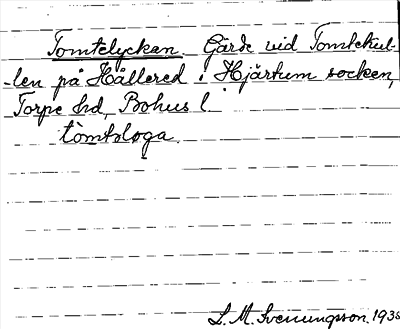 Tomtelyckan. Gärde vid Tomtekul-
-len på Hällered i Hjärtum socken,
Torpe hd, Bohus l.
tomtsloga.
L. M. Svenungsson. 1938